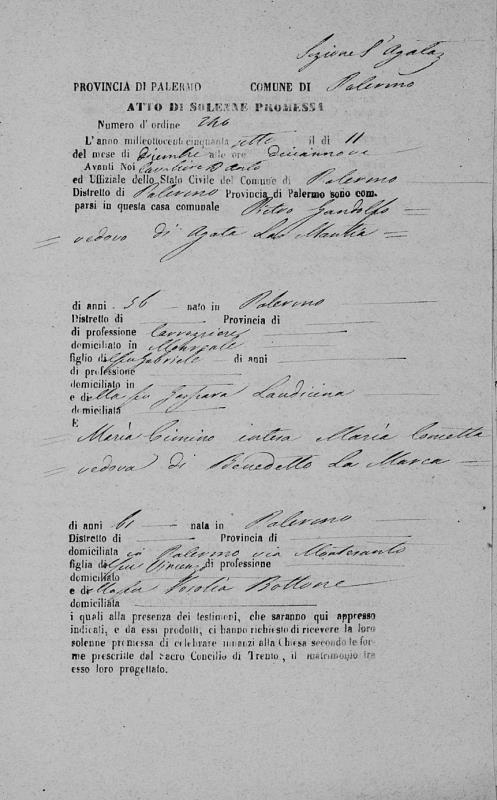 Sezione S. Agata
PROVINCIA DI PALERMO COMUNE DI Palermo
ATTO DI SOLENNE PROMESSA
Numero d'ordine 246
L'anno milleottocentocinquanta sette il dì 11
del mese di Dicembre alle ore diciannove
Avanti Noi Cavaliere
ed Uffiziale dello Stato Civile del Comune di Palermo
Distretto di Palermo Provincia di Palermo sono com-
parsi in questa casa comunale Pietro Gandolfo =
= vedovo di Agata Lo Mantia =
di anni 56 — nato in Palermo
Distretto di — Provincia di —
di professione
domiciliato in Monreale
figlio del fu Gabriele di anni —
di professione
domiciliato in
e della fu Gaspara Laudicina
domiciliata —
E
= Maria Cimino intesa Maria Cometta
= vedova di Benedetto La Marca =
di anni 61 — nata in Palermo
Distretto di — Provincia di —
domiciliata in Palermo via Montesanto
figlia del fu di professione —
domiciliato —
e della fu Rosolia Bottone
domiciliata —
i quali alla presenza dei testimoni, che saranno qui appresso
indicati, e da essi prodotti, ci hanno richiesto di ricevere la loro
solenne promessa di celebrare innanzi alla Chiesa secondo le for-
me prescritte dal Sacro Concilio di Trento, il matrimonio tra
esso loro progettato.